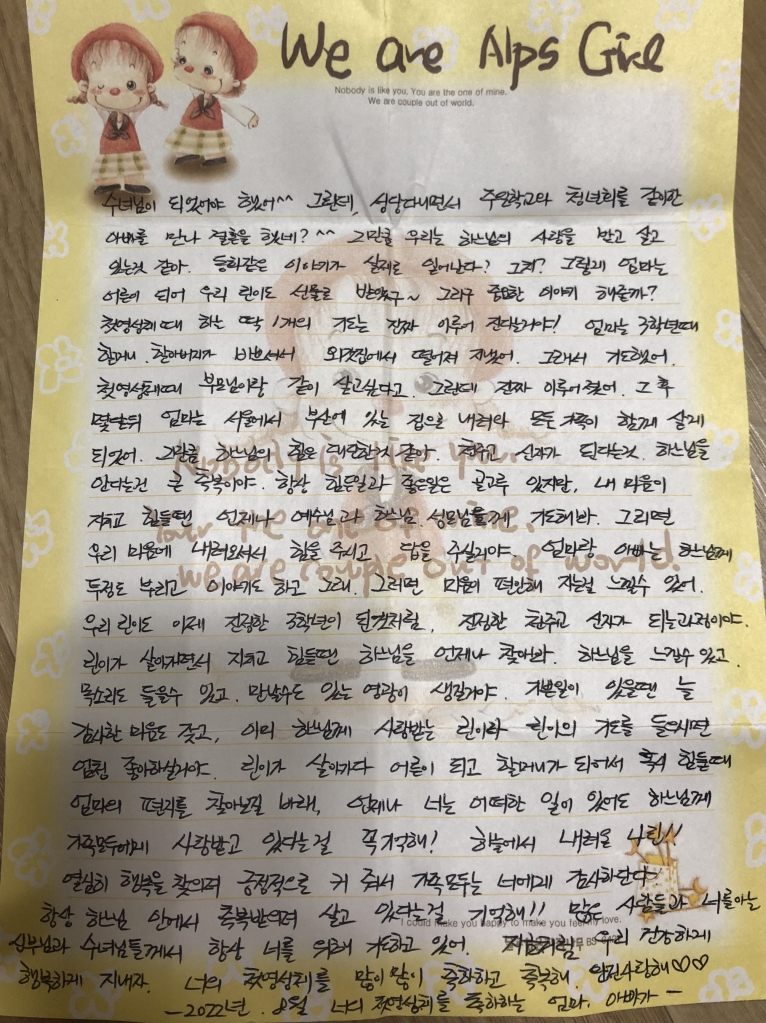 We are Alps Girl
Nobody is like you. You are the one of mine.
We are couple out of world.
수녀님이 되었어야 했어^^ 그런데, 성당다니면서 주일학교와 청년회를 같이한
아빠를 만나 결혼을 했네? ^^ 그만큼 우리는 하느님의 사랑을 받고 살고
있는것 같아. 동화같은 이야기가 실제로 일어난다? 그치? 그렇게 엄마는
어른이 되어 우리 린이도 선물로 받았구~ 그리구 중요한 이야기 해줄까?
첫영성체때 하는 딱 1개의 기도는 진짜 이루어 진다는거야! 엄마는 3학년때
할머니, 할아버지가 바쁘셔서 외갓집에서 떨어져 지냈어. 그래서 기도했어.
첫영성체때 부모님이랑 같이 살고싶다고. 그런데 진짜 이루어졌어. 그 후
몇달뒤 엄마는 서울에서 부산에 있는 집으로 내려와 모든 가족이 함께 살게
되었어. 그만큼 하느님의 힘은 대단한것 같아. 천주교 신자가 된다는것, 하느님을
안다는건 큰 축복이야. 항상 힘든일과 좋은일은 골고루 있지만, 내 마음이
지치고 힘들땐 언제나 예수님과 하느님, 성모님께 기도해봐. 그러면
우리 마음에 내려오셔서 힘을 주시고 답을 주실거야. 엄마랑 아빠는 하느님께
투정도 부리고 이야기도 하고 그래. 그러면 마음이 편안해 지는걸 느낄수 있어.
우리 린이도 이제 진정한 3학년이 된것처럼, 진정한 천주교 신자가 되는과정이야.
린이가 살아가면서 지치고 힘들땐 하느님을 언제나 찾아봐. 하느님을 느낄수 있고,
목소리도 들을수 있고, 만날수도 있는 영광이 생길거야. 기쁜일이 있을땐 늘
감사한 마음도 갖고, 이미 하느님께 사랑받는 린이라 린이의 기도를 들으시면
엄청 좋아하실거야. 린이가 살아가다 어른이 되고 할머니가 되어서 혹시 힘들때
엄마의 편지를 찾아보길 바래, 언제나 너는 어떠한 일이 있어도 하느님께
가족모두에게 사랑받고 있다는걸 꼭 기억해! 하늘에서 내려온 나린!!
열심히 행복을 찾으며 긍정적으로 커 줘서 가족모두는 너에게 감사한단다
항상 하느님 안에서 축복받으며 살고 있다는걸 기억해!! 많은 사람들과 너를아는
I could make you happy to make you feel my love.
신부님과 수녀님들께서 항상 너를 위해 기도하고 있어. 지금처럼 우리 건강하게
행복하게 지내자. 너의 첫영성체를 많이많이 축하하고 축복해. 엄청사랑해♡♡
-2022년. 8월 너의 첫영성체를 축하하는 엄마. 아빠가-
Nobody is like you.
You are the one of mine.
We are couple out of world.